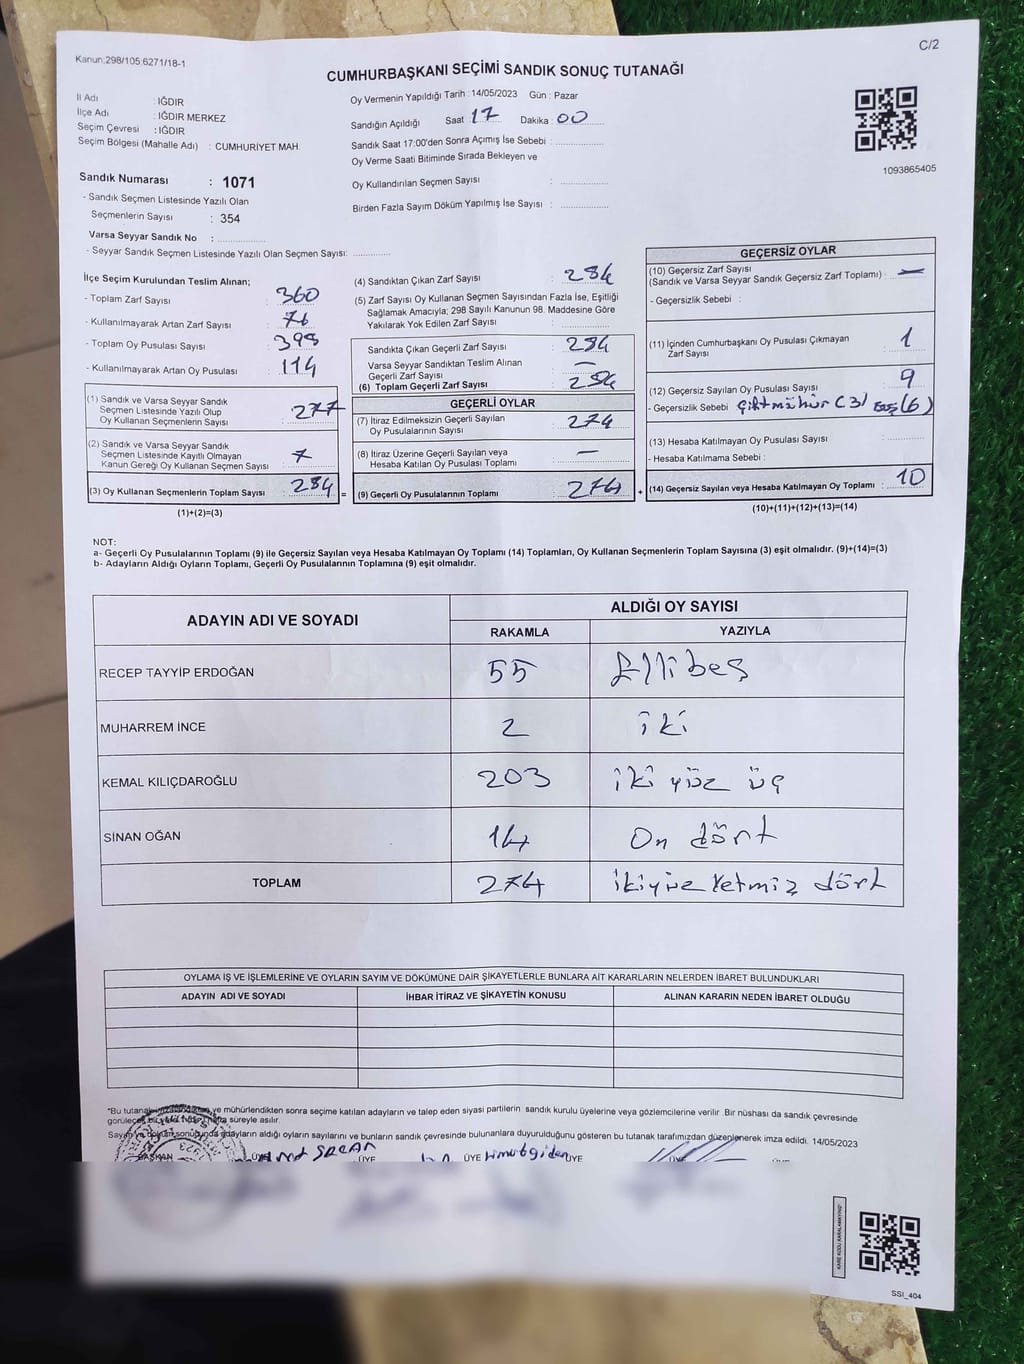 Kanun:298/105,6271/18-1
C/2
CUMHURBAŞKANI SEÇİMİ SANDIK SONUÇ TUTANAĞI
İl Adı : IĞDIR
İlçe Adı : IĞDIR MERKEZ
Seçim Çevresi : IĞDIR
Seçim Bölgesi (Mahalle Adı) : CUMHURİYET MAH.
Sandık Numarası : 1071
- Sandık Seçmen Listesinde Yazılı Olan
Seçmenlerin Sayısı : 354
Varsa Seyyar Sandık No :
- Seyyar Sandık Seçmen Listesinde Yazılı Olan Seçmen Sayısı:
Oy Vermenin Yapıldığı Tarih : 14/05/2023 Gün : Pazar
Sandığın Açıldığı Saat 17 Dakika : 00
Sandık Saat 17:00'den Sonra Açımış İse Sebebi :
Oy Verme Saati Bitiminde Sırada Bekleyen ve
Oy Kullandırılan Seçmen Sayısı :
Birden Fazla Sayım Döküm Yapılmış İse Sayısı :
1093865405
İlçe Seçim Kurulundan Teslim Alınan;
- Toplam Zarf Sayısı : 360
- Kullanılmayarak Artan Zarf Sayısı : 76
- Toplam Oy Pusulası Sayısı : 398
- Kullanılmayarak Artan Oy Pusulası : 114
(1) Sandık ve Varsa Seyyar Sandık
Seçmen Listesinde Yazılı Olup
Oy Kullanan Seçmenlerin Sayısı : 277
(2) Sandık ve Varsa Seyyar Sandık
Seçmen Listesinde Kayıtlı Olmayan
Kanun Gereği Oy Kullanan Seçmen Sayısı : 7
(3) Oy Kullanan Seçmenlerin Toplam Sayısı : 284
(1)+(2)=(3)
(4) Sandıktan Çıkan Zarf Sayısı : 284
(5) Zarf Sayısı Oy Kullanan Seçmen Sayısından Fazla İse, Eşitliği
Sağlamak Amacıyla; 298 Sayılı Kanunun 98. Maddesine Göre
Yakılarak Yok Edilen Zarf Sayısı :
Sandıkta Çıkan Geçerli Zarf Sayısı : 284
Varsa Seyyar Sandıktan Teslim Alınan
Geçerli Zarf Sayısı : —
(6) Toplam Geçerli Zarf Sayısı : 284
GEÇERLİ OYLAR
(7) İtiraz Edilmeksizin Geçerli Sayılan
Oy Pusulalarının Sayısı : 274
(8) İtiraz Üzerine Geçerli Sayılan veya
Hesaba Katılan Oy Pusulası Toplamı : —
= (9) Geçerli Oy Pusulalarının Toplamı : 274
GEÇERSİZ OYLAR
(10) Geçersiz Zarf Sayısı
(Sandık ve Varsa Seyyar Sandık Geçersiz Zarf Toplamı) : —
- Geçersizlik Sebebi :
(11) İçinden Cumhurbaşkanı Oy Pusulası Çıkmayan
Zarf Sayısı : 1
(12) Geçersiz Sayılan Oy Pusulası Sayısı : 9
- Geçersizlik Sebebi : Çift mühür (3) Boş (6)
(13) Hesaba Katılmayan Oy Pusulası Sayısı :
- Hesaba Katılmama Sebebi :
+ (14) Geçersiz Sayılan veya Hesaba Katılmayan Oy Toplamı : 10
(10)+(11)+(12)+(13)=(14)
NOT:
a- Geçerli Oy Pusulalarının Toplamı (9) ile Geçersiz Sayılan veya Hesaba Katılmayan Oy Toplamı (14) Toplamları, Oy Kullanan Seçmenlerin Toplam Sayısına (3) eşit olmalıdır. (9)+(14)=(3)
b- Adayların Aldığı Oyların Toplamı, Geçerli Oy Pusulalarının Toplamına (9) eşit olmalıdır.
ADAYIN ADI VE SOYADI
ALDIĞI OY SAYISI
RAKAMLA YAZIYLA
RECEP TAYYİP ERDOĞAN 55 Ellibeş
MUHARREM İNCE 2 iki
KEMAL KILIÇDAROĞLU 203 iki yüz üç
SİNAN OĞAN 14 On dört
TOPLAM 274 ikiyüz Yetmiz dört
OYLAMA İŞ VE İŞLEMLERİNE VE OYLARIN SAYIM VE DÖKÜMÜNE DAİR ŞİKAYETLERLE BUNLARA AİT KARARLARIN NELERDEN İBARET BULUNDUKLARI
ADAYIN ADI VE SOYADI İHBAR İTİRAZ VE ŞİKAYETİN KONUSU ALINAN KARARIN NEDEN İBARET OLDUĞU
*Bu tutanak ve mühürlendikten sonra seçime katılan adayların ve talep eden siyasi partilerin sandık kurulu üyelerine veya gözlemcilerine verilir. Bir nüshası da sandık çevresinde
süreyle asılır.
adayların aldığı oyların sayılarını ve bunların sandık çevresinde bulunanlara duyurulduğunu gösteren bu tutanak tarafımızdan düzenlenerek imza edildi. 14/05/2023
BAŞKAN ÜYE ÜYE ÜYE ÜYE
KARE KODU KARALAMAYINIZ
SSI_404